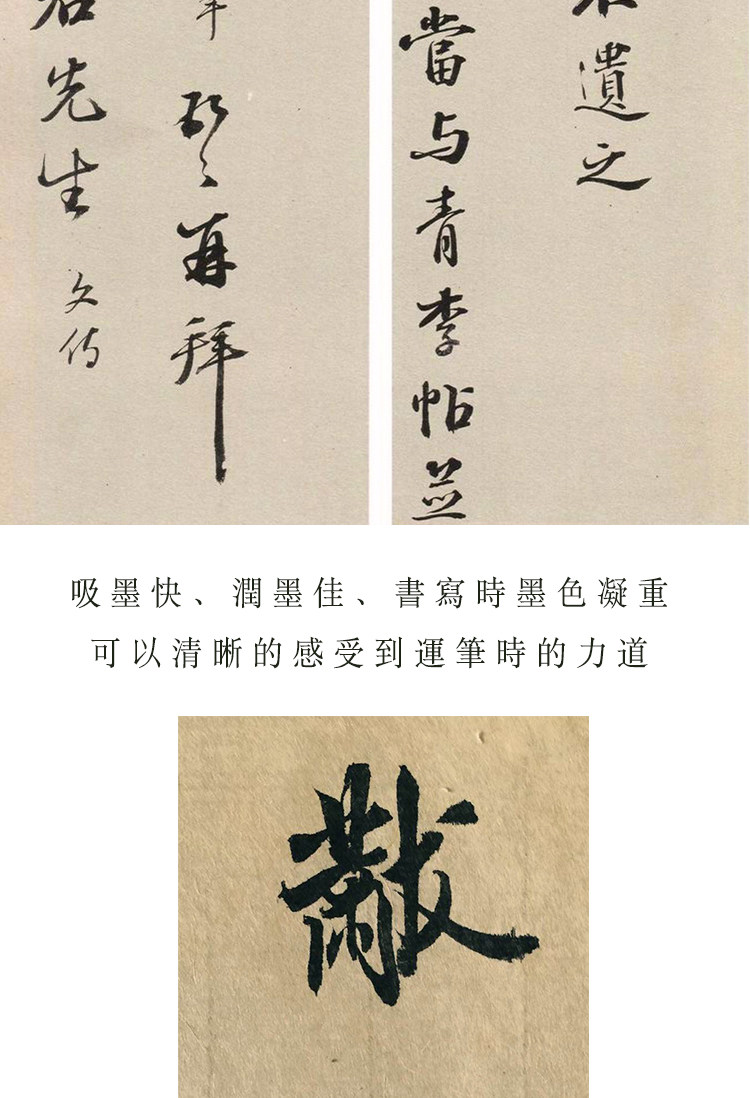 遺之
當与青李帖並
再拜
先生 文侍
吸墨快、潤墨佳、書寫時墨色凝重
可以清晰的感受到運筆時的力道
黻